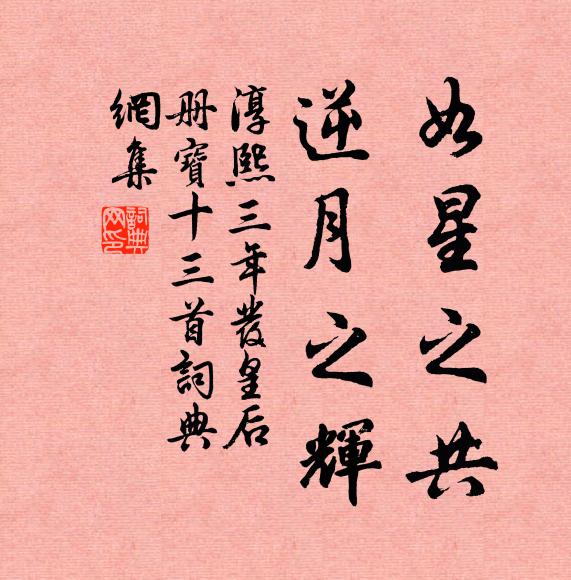 如星之共
逆月之輝
淳熙三年發皇后
册寶十三首詞典
網集
詞典
网印